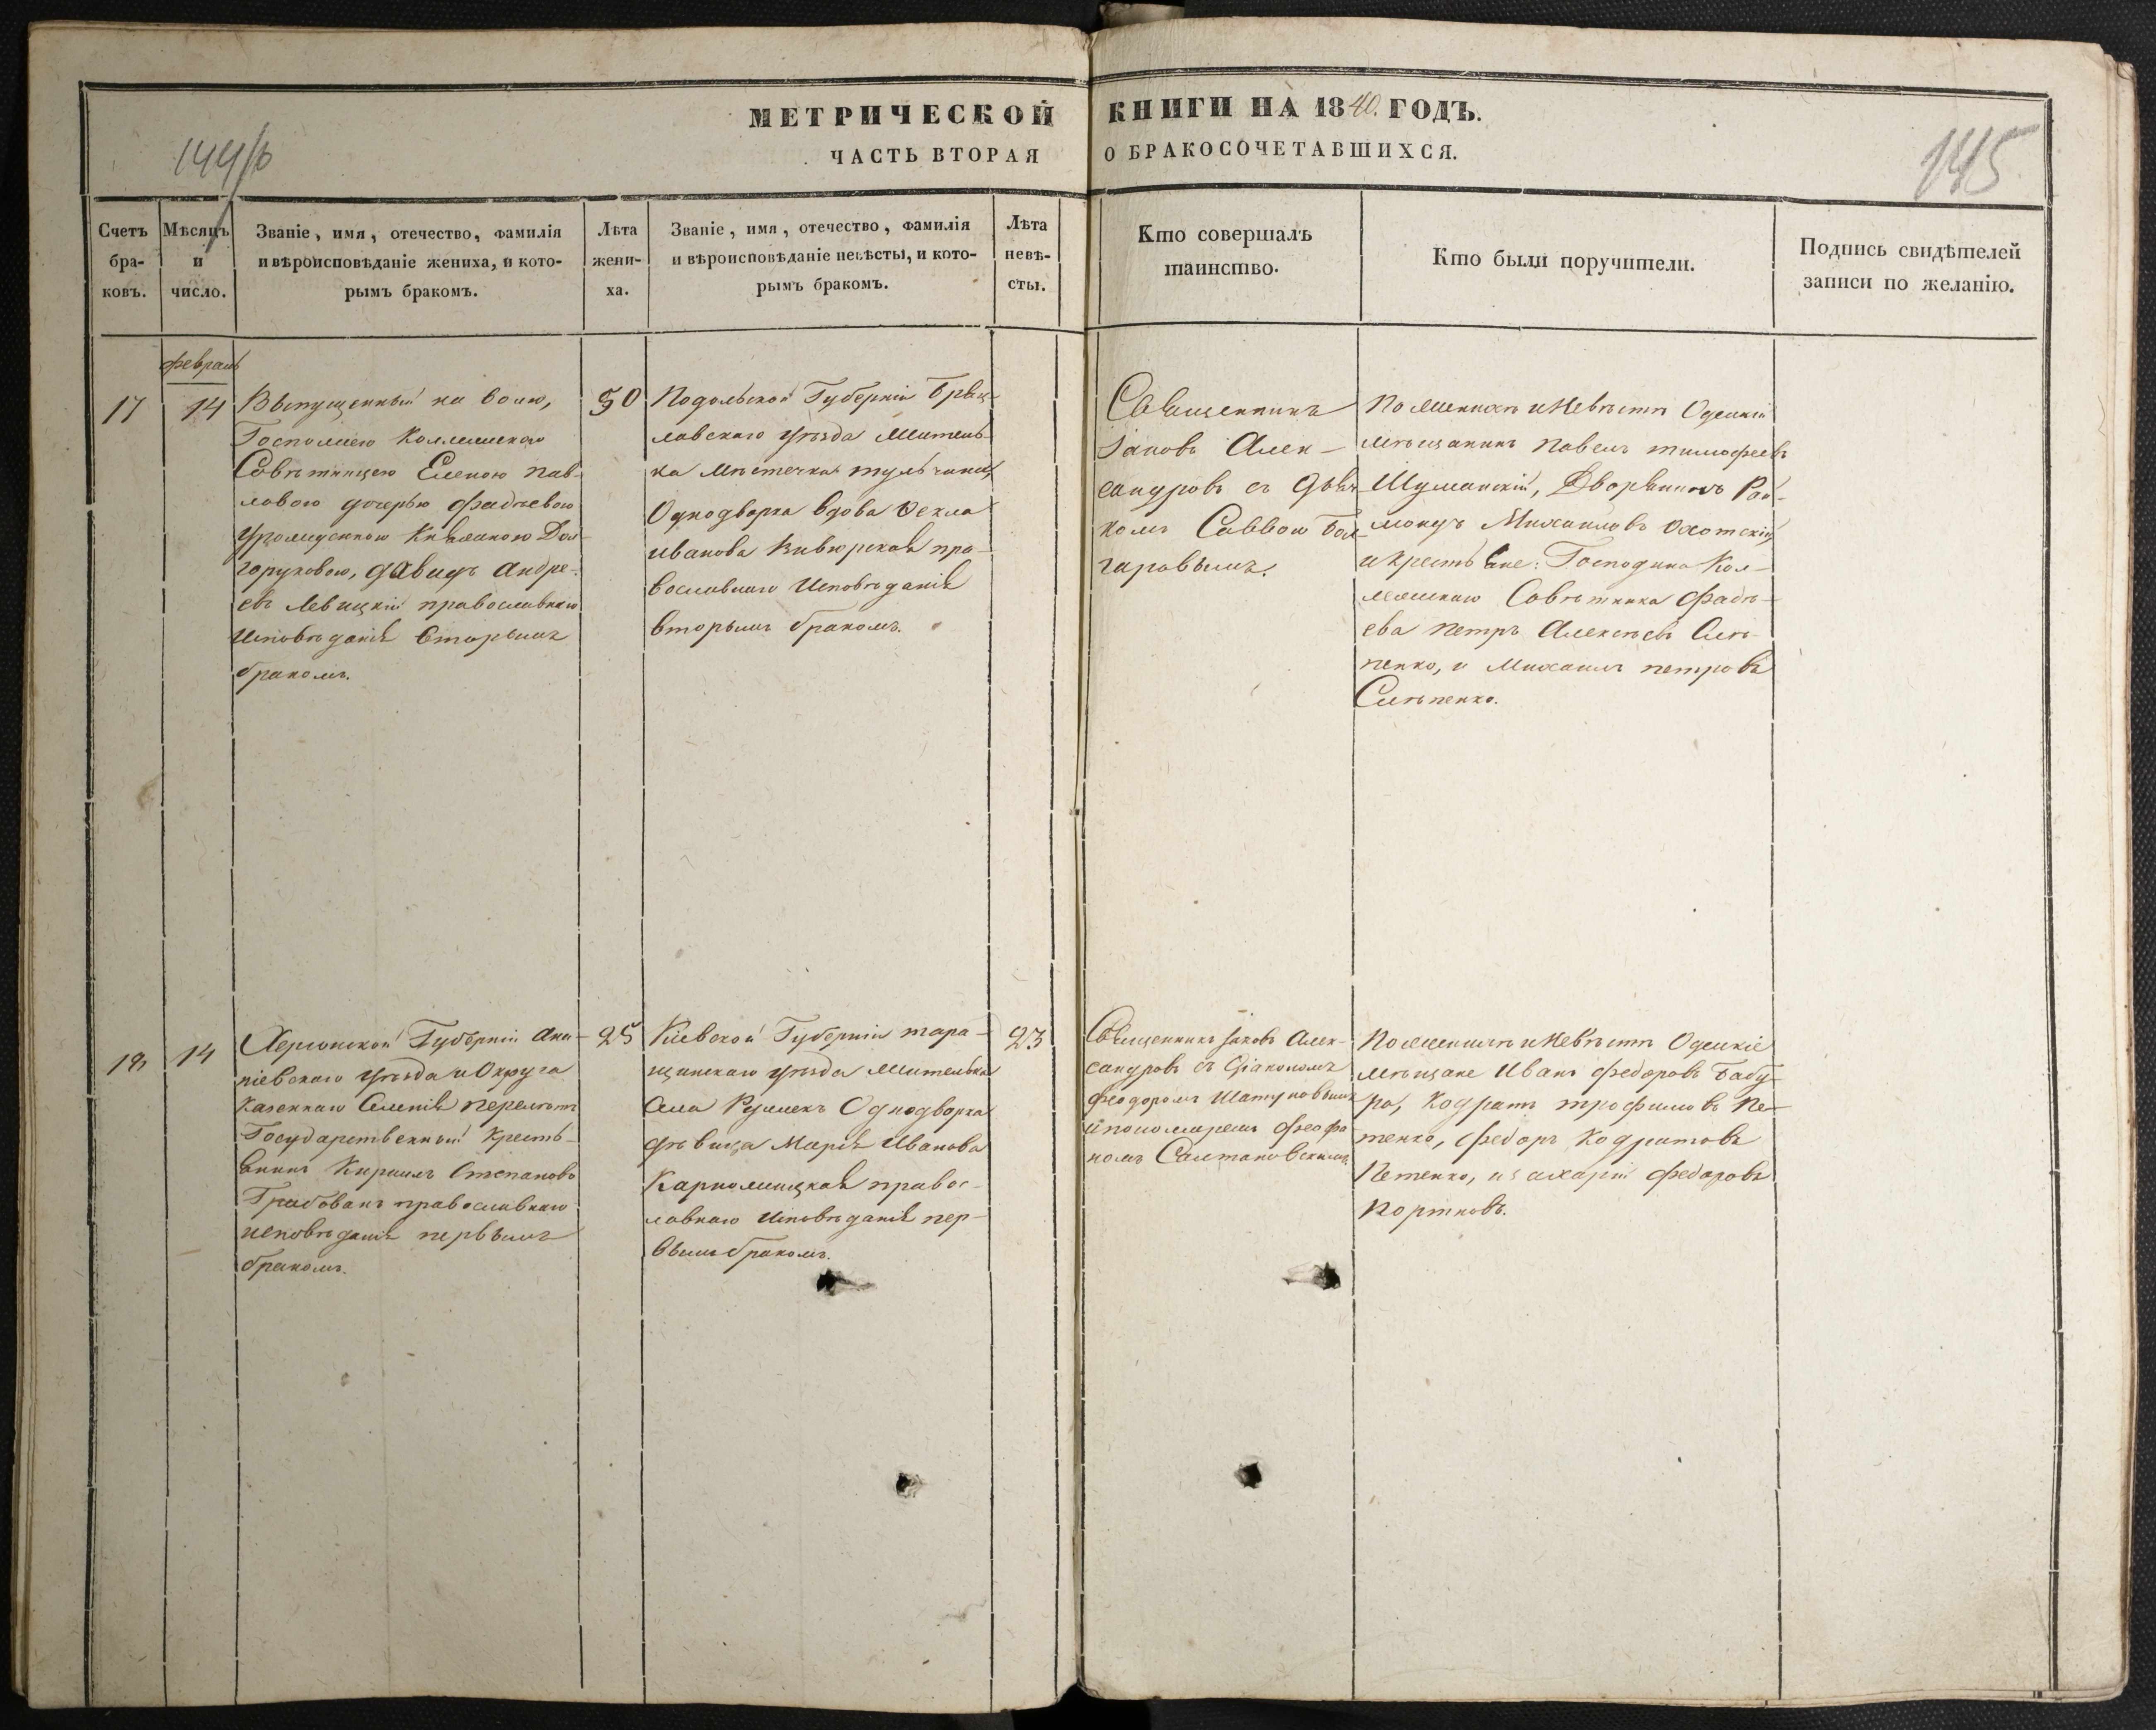 МЕТРИЧЕСКОЙ КНИГИ НА 1840. ГОДЪ.
ЧАСТЬ ВТОРАЯ О БРАКОСОЧЕТАВШИХСЯ.
145
Счетъ бра-ковъ.
Мѣсяцъ и число.
Званіе, имя, отечество, фамилія
и вѣроисповѣданіе жениха, и кото-
рымъ бракомъ.
Лѣта жени-ха.
Званіе, имя, отечество, фамилія
и вѣроисповѣданіе невѣсты, и кото-
рымъ бракомъ.
Лѣта невѣ-сты.
Кто совершалъ
таинство.
Кто были поручители.
Подпись свидѣтелей
записи по желанію.
февраль
17
14
Выпущенный на волю,
Госпожею Коллежскою
Совѣтницею Еленою Пав-
ловою дочерью Фадѣевою
урожденною Княжною Дол-
горуковою, Давидъ Андре-
евъ Левицкій православнаго
Исповѣданія вторымъ
бракомъ.
50
Подольской Губерніи Брац-
лавскаго уѣзда Житель-
ка Мѣстечка Тульчина,
Однодворка вдова Ѳекла
Иванова пра-
вославнаго Исповѣданія
вторымъ бракомъ.
Священникъ
Іаковъ Алек-
сандровъ съ Дьяч-
комъ Саввою Бол-
гаровымъ.
По женихѣ и Невѣстѣ Одескій
мѣщанинъ Павелъ Тимофеевъ
Шуманскій, Дворянинъ Рай-
мондъ Михаиловъ Охотскій,
и крестьяне: Господина Кол-
лежскаго Совѣтника Фадѣ-
ева Петръ Алексѣевъ Слѣ-
пенко, и Михаилъ Петровъ
Слѣпенко.
18
14
Херсонской Губерніи Ана-
ніевскаго уѣзда и Округа
Казеннаго Селенія Перелѣтъ
Государственный Кресть-
янинъ Кириллъ Степановъ
Грабованъ православнаго
исповѣданія первымъ
бракомъ.
25
Кіевской Губерніи Тара-
щанскаго уѣзда Жителька
Села Однодворка
дѣвица Марія Иванова
Карполицкая правос-
лавнаго Исповѣданія пер-
вымъ бракомъ.
23
Священникъ Іаковъ Алек-
сандровъ съ Діакономъ
Феодоромъ Шатуновымъ
и пономаремъ Феофа-
номъ Салтановскимъ
По женихѣ и Невѣстѣ Одескіе
мѣщане Иванъ Федоровъ Бабу-
ра, Кодратъ Трофимовъ Пе-
тенко, Федоръ Кодратовъ
Петенко, и захарій Федоровъ
Портновъ.